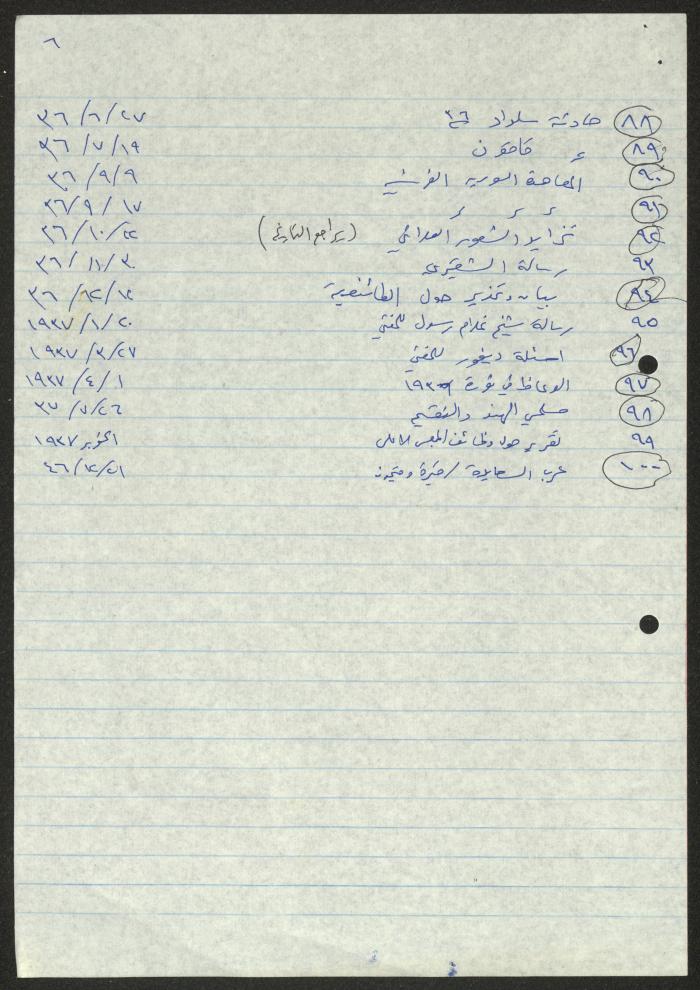 ٦
٨٨ حادثة سلواد ٣٦/٦/٢٧
٨٩ " قاقون ٣٦/٧/١٩
٩٠ المعاهدة السورية الفرنسية ٣٦/٩/٩
٩١ " " " ٣٦/٩/١٧
٩٢ تزايد الشعور العدائي (يراجع التاريخ) ٣٦/١٠/١٢
٩٣ رسالة الشقيري ٣٦/١١/٣
٩٤ بيان وتحذير حول الطائفية ٣٦/١٢/١٢
٩٥ رسالة شيخ غلام رسول للمفتي ١٩٣٧/١/٢٠
٩٦ اسئلة ديفور للمفتي ١٩٣٧/٣/٢٧
٩٧ الوعاظ في ثورة ١٩٣٦ ١٩٣٧/٤/١
٩٨ مسلمي الهند والتقسيم ٣٧/٧/٢٦
٩٩ تقرير حول وظائف المجلس الاسلامي اكتوبر ١٩٣٧
١٠٠ عرب / ٤٦/٢/٢١